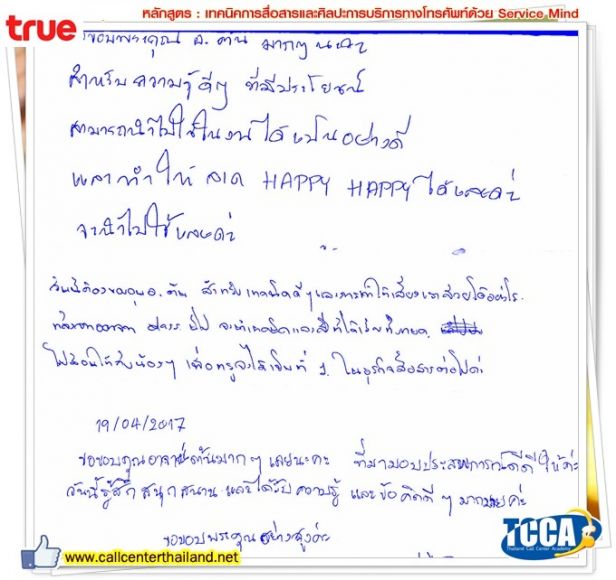 หลักสูตร : เทคนิคการสื่อสารและศิลปะการบริการทางโทรศัพท์ด้วย Service Mind
true
ขอบพระคุณ อ. ต้น มากๆ นะคะ
สำหรับความรู้ดีๆ ที่มีประโยชน์
สามารถนำไปใช้ในงานได้เป็นอย่างดี
HAPPY HAPPY ได้เลยค่ะ
จะนำไปใช้เลยค่ะ
วันนี้ต้องขอบคุณ อ. ต้น สำหรับเทคนิคดีๆ และการทำให้เสียงเราสวยได้อย่างไร
class นี้ไป จะนำเทคนิคและสิ่งที่ได้เรียนทั้งหมด
ไปสอนให้กับน้องๆ เพื่อทรูจะได้เป็นที่ 1. ในธุรกิจสื่อสารต่อไปค่ะ
19/04/2017
ขอขอบคุณอาจารย์ต้นมากๆ เลยนะคะ ที่มามอบประสบการณ์ดีดีให้ค่ะ
วันนี้รู้สึกสนุกสนาน และได้รับความรู้ และข้อคิดดีๆ มากมายค่ะ
ขอขอบพระคุณอย่างสูงค่ะ
www.callcenterthailand.net
TCCA
Thailand Call Center Academy